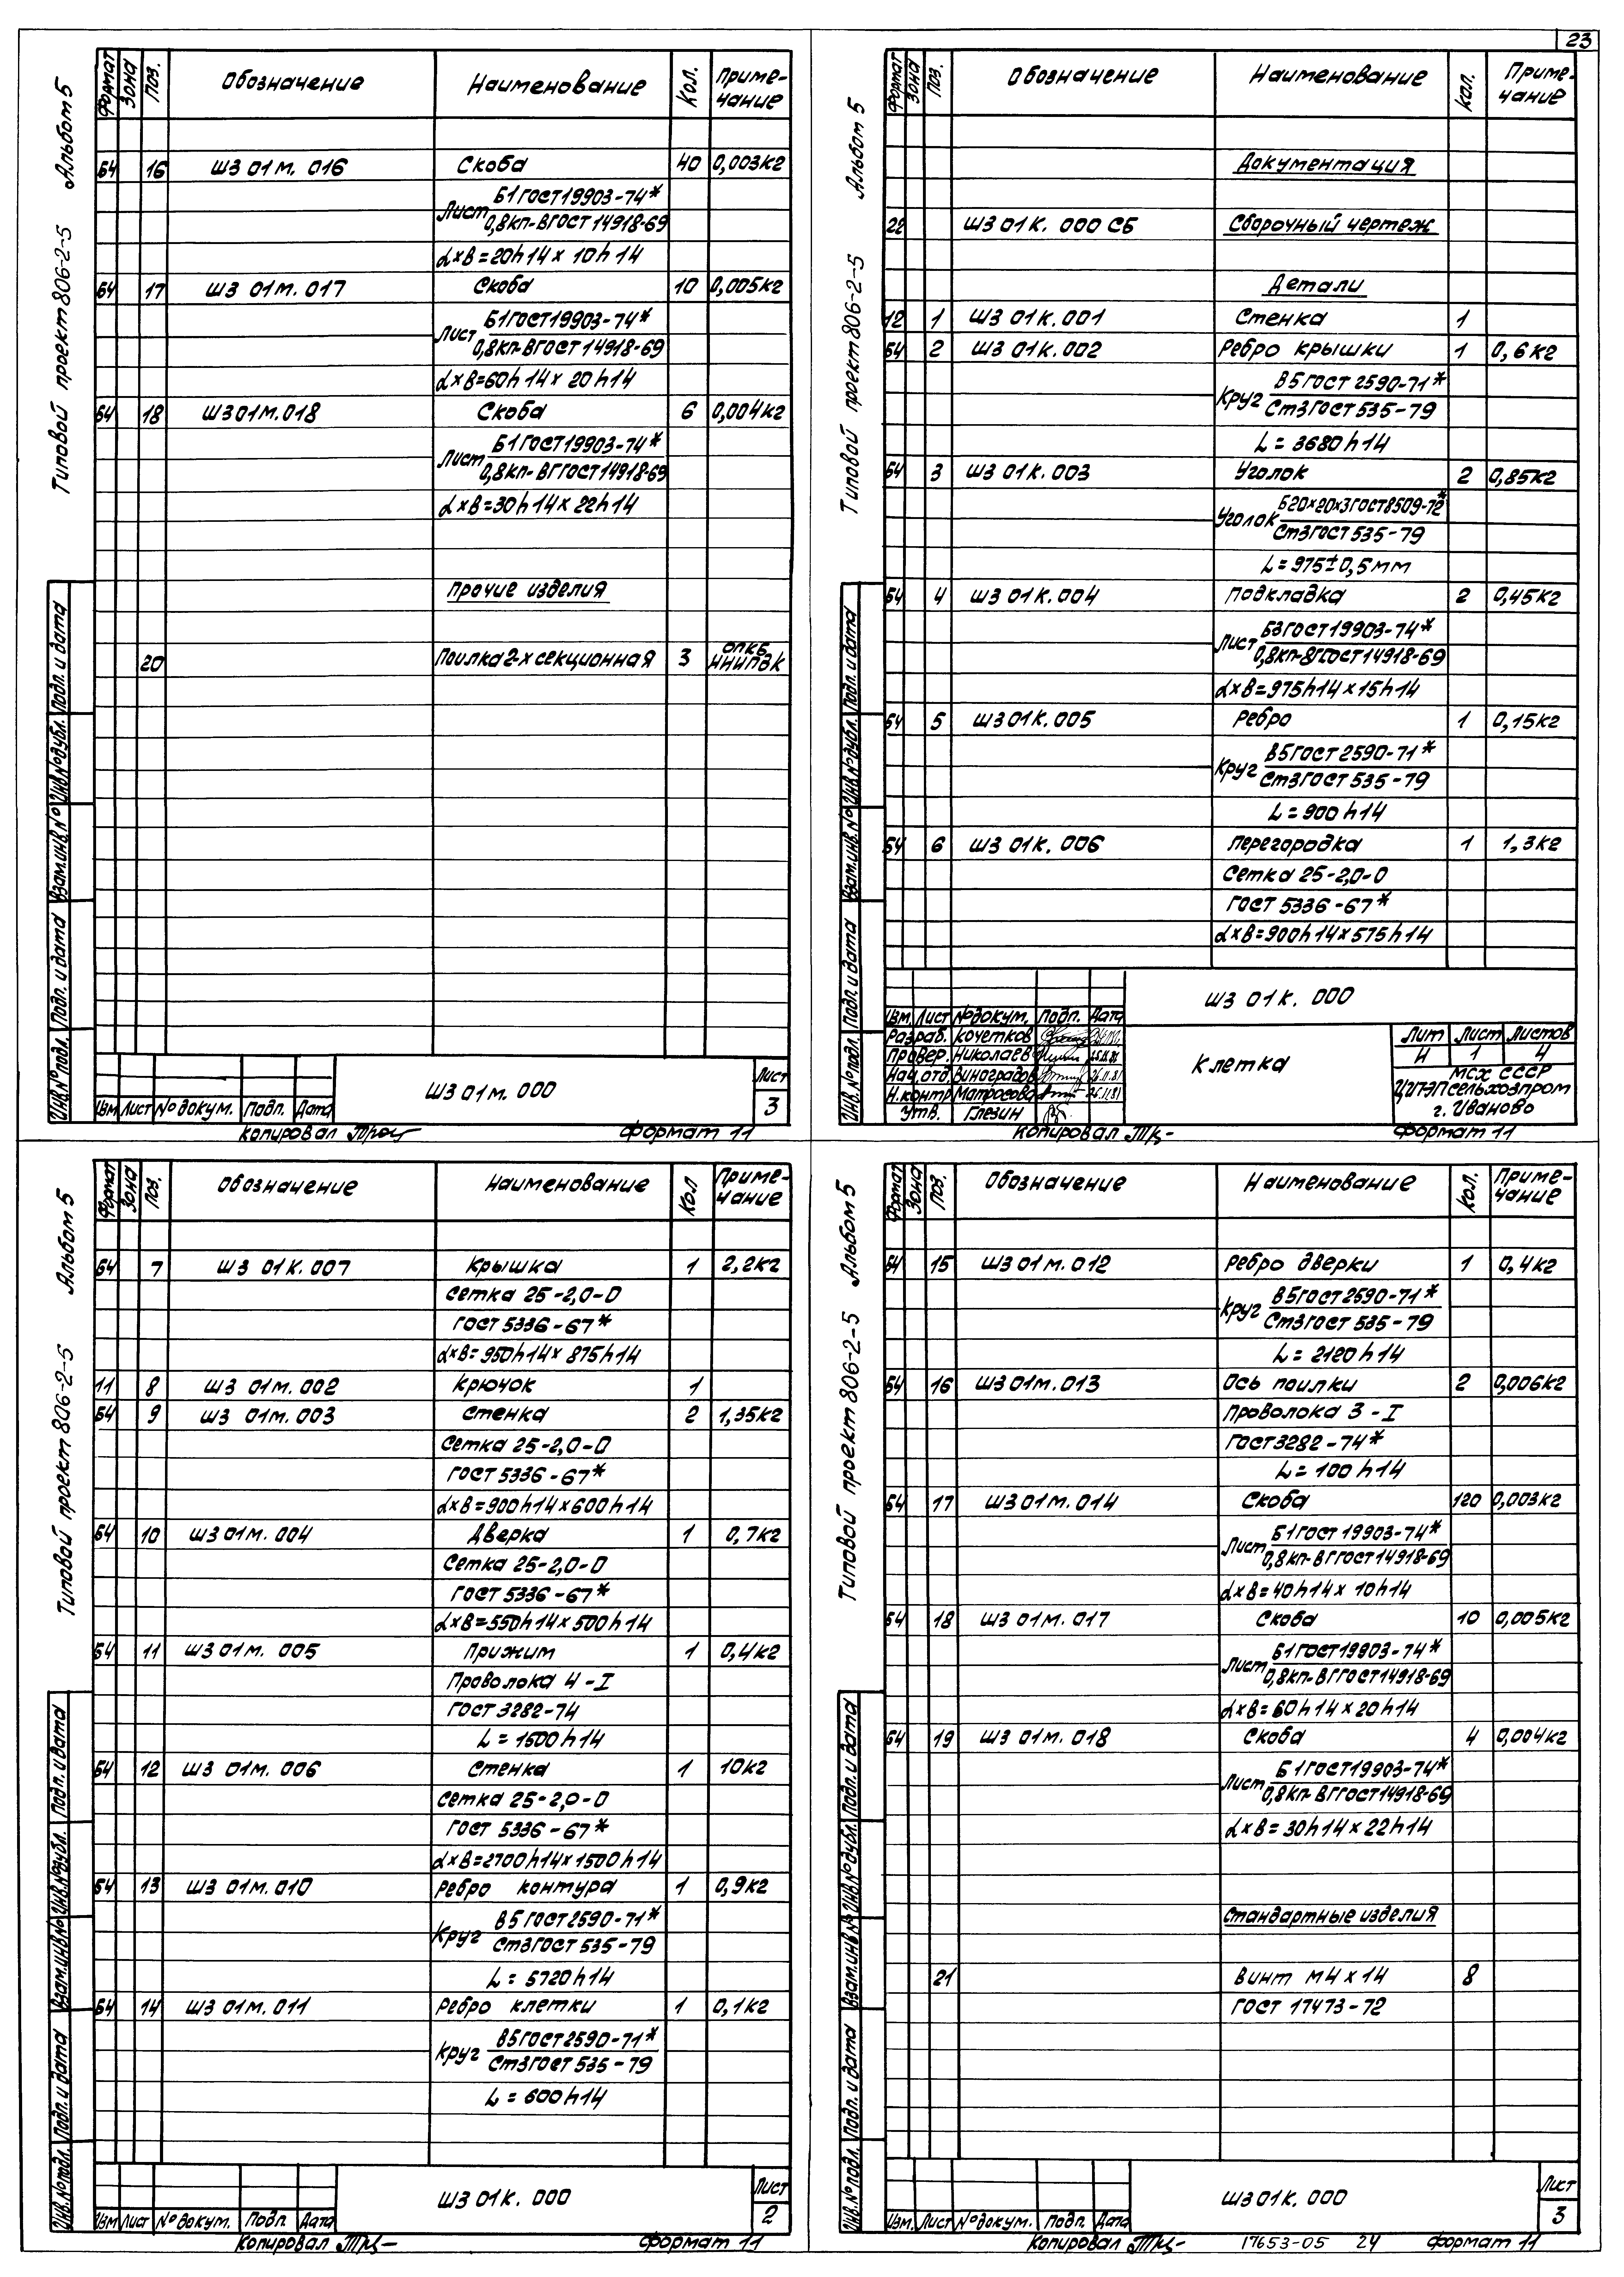 23
Типовой проект 806-2-5 Альбом 5
Формат Зона Поз. Обозначение Наименование Кол. Приме-
чание
Б4 16 ШЗ 01М. 016 Скоба 40 0,003кг
Лист Б1 ГОСТ 19903-74*
0,8кп-ВГОСТ 14918-69
α×В=20h14× 10h14
Б4 17 ШЗ 01М. 017 Скоба 10 0,005кг
Лист Б1 ГОСТ 19903-74*
0,8кп-ВГОСТ 14918-69
α×В=60h14× 20h14
Б4 18 ШЗ 01М. 018 Скоба 6 0,004кг
Лист Б1 ГОСТ 19903-74*
0,8кп-ВГГОСТ 14918-69
α×В=30h14× 22h14
Прочие изделия
20 Поилка 2-х секционная 3 ОПКБ
НИИПЗК
Инв.№подл. Подп. и дата Взам.инв.№ Инв.№дубл. Подп. и дата
Изм Лист №докум. Подп. Дата
ШЗ 01М. 000
Лист
3
Копировал Формат 11
Типовой проект 806-2-5 Альбом 5
Формат Зона Поз. Обозначение Наименование Кол. Приме-
чание
Документация
22 ШЗ 01К. 000 СБ Сборочный чертеж
Детали
12 1 ШЗ 01К. 001 Стенка 1
Б4 2 ШЗ 01К. 002 Ребро крышки 1 0,6кг
Круг В5 ГОСТ 2590-71*
Ст3 ГОСТ 535-79
L = 3680h14
Б4 3 ШЗ 01К. 003 Уголок 2 0,85кг
Уголок Б20×20×3 ГОСТ 8509-72*
Ст3 ГОСТ 535-79
L = 975±0,5мм
Б4 4 ШЗ 01К. 004 Подкладка 2 0,45кг
Лист Б3 ГОСТ 19903-74*
0,8кп-ВГОСТ 14918-69
α×В=975h14×15h14
Б4 5 ШЗ 01К. 005 Ребро 1 0,15кг
Круг В5 ГОСТ 2590-71*
Ст3 ГОСТ 535-79
L = 900h14
Б4 6 ШЗ 01К. 006 Перегородка 1 1,3кг
Сетка 25-2,0-0
ГОСТ 5336-67*
α×В=900h14×575h14
Инв.№подл. Подп. и дата Взам.инв.№ Инв.№дубл. Подп. и дата
ШЗ 01К. 000
Изм. Лист №докум. Подп. Дата
Разраб. Кочетков
Провер. Николаев
Нач. отд. Виноградов
Н.контр. Матросова
Утв. Глезин
Клетка
Лит Лист Листов
И 1 4
МСХ СССР
ЦИТЭПсельхозпром
г. Иваново
Копировал Формат 11
Типовой проект 806-2-5 Альбом 5
Формат Зона Поз. Обозначение Наименование Кол Приме-
чание
Б4 7 ШЗ 01К. 007 Крышка 1 2,2кг
Сетка 25-2,0-0
ГОСТ 5336-67*
α×В=950h14× 875h14
11 8 ШЗ 01М. 002 Крючок 1
Б4 9 ШЗ 01М. 003 Стенка 2 1,35кг
Сетка 25-2,0-0
ГОСТ 5336-67*
α×В=900h14×600h14
Б4 10 ШЗ 01М. 004 Дверка 1 0,7кг
Сетка 25-2,0-0
ГОСТ 5336-67*
α×В=550h14×500h14
Б4 11 ШЗ 01М. 005 Прижим 1 0,4кг
Проволока 4-I
ГОСТ 3282-74
L = 1500h14
Б4 12 ШЗ 01М. 006 Стенка 1 10кг
Сетка 25-2,0-0
ГОСТ 5336-67*
α×В=2700h14×1500h14
Б4 13 ШЗ 01М. 010 Ребро контура 1 0,9кг
Круг В5 ГОСТ 2590-71*
Ст3 ГОСТ 535-79
L = 5720h14
Б4 14 ШЗ 01М. 011 Ребро клетки 1 0,1кг
Круг В5 ГОСТ 2590-71*
Ст3 ГОСТ 535-79
L = 600h14
Инв.№подл. Подп. и дата Взам.инв.№ Инв.№дубл. Подп. и дата
Изм Лист №докум. Подп. Дата
ШЗ 01К. 000
Лист
2
Копировал Формат 11
Типовой проект 806-2-5 Альбом 5
Формат Зона Поз. Обозначение Наименование Кол. Приме-
чание
Б4 15 ШЗ 01М. 012 Ребро дверки 1 0,4кг
Круг В5 ГОСТ 2590-71*
Ст3 ГОСТ 535-79
L = 2120h14
Б4 16 ШЗ 01М. 013 Ось поилки 2 0,006кг
Проволока 3-I
ГОСТ 3282-74*
L = 100h14
Б4 17 ШЗ 01М. 014 Скоба 120 0,003кг
Лист Б1 ГОСТ 19903-74*
0,8кп-ВГГОСТ 14918-69
α×В=40h14× 10h14
Б4 18 ШЗ 01М. 017 Скоба 10 0,005кг
Лист Б1 ГОСТ 19903-74*
0,8кп-ВГГОСТ 14918-69
α×В=60h14×20h14
Б4 19 ШЗ 01М. 018 Скоба 4 0,004кг
Лист Б1 ГОСТ 19903-74*
0,8кп-ВГГОСТ 14918-69
α×В=30h14×22h14
Стандартные изделия
21 Винт М4×14 8
ГОСТ 17473-72
Инв.№подл. Подп. и дата Взам.инв.№ Инв.№дубл. Подп. и дата
Изм. Лист №докум. Подп. Дата
ШЗ 01К. 000
Лист
3
Копировал 17653-05 24 Формат 11